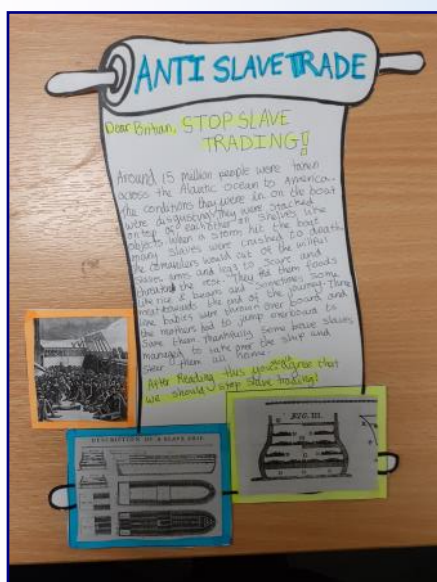 ANTI SLAVE TRADE
Dear Britian, STOP SLAVE
TRADING!
Around 15 million people were taken
across the Atlantic ocean to America.
The conditions they were in on the boat
were disgusting they were stacked
on top of each other on shelves like
objects when a storm hit the boat
many slaves were crushed to death.
the would cut of the
slaves arms and legs to scare and
the rest. They fed them foods
like rice & beans and sometimes some
meat towards the end of the journey. There
babies were thrown over board and
the mothers had to jump overboard to
Save them. thankfully some brave slaves
managed to take over the ship and
them all home.
After Reading this you agree that
we should stop slave trading!
DESCRIPTION OF A SLAVE SHIP
FIG. III.